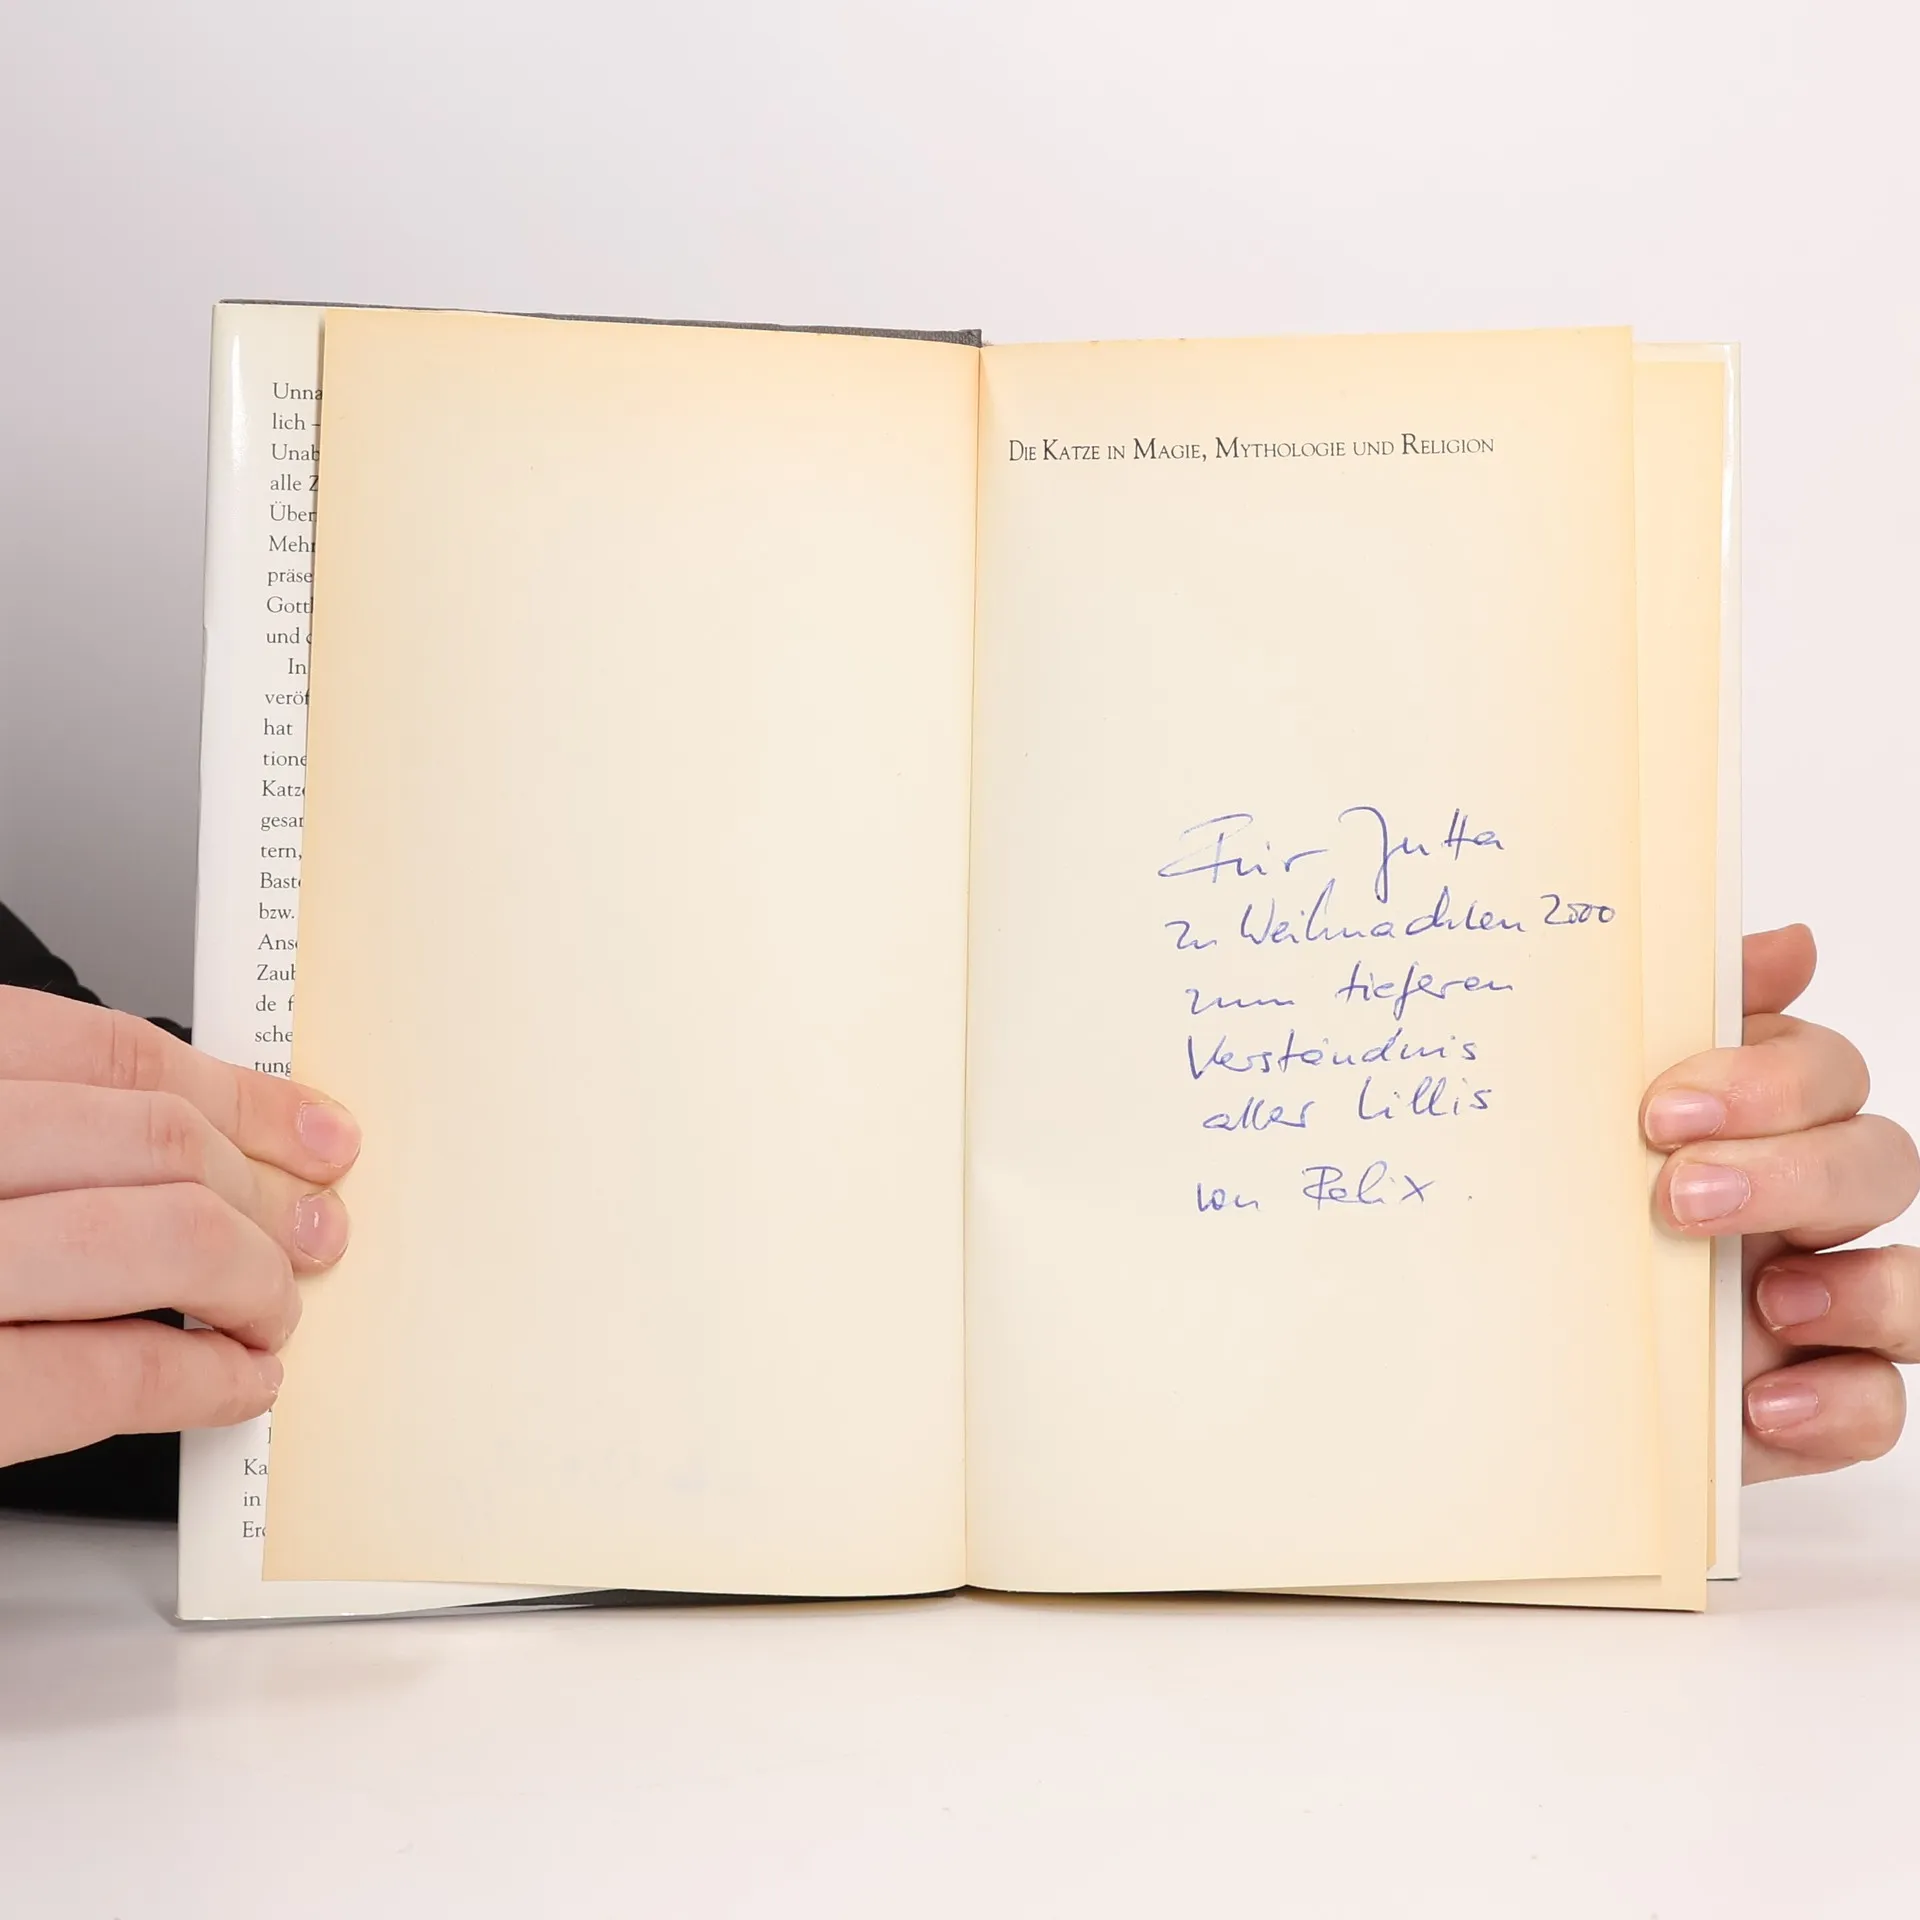 Unna
lich –
Unab
alle Z
Über
Mehr
präse
Gottl
und
In
veröf
hat
tione
Katze
gesar
tern,
Baste
bzw.
Anse
Zaub
de f
sche
tung
Ka
in
Ero
DIE KATZE IN MAGIE, MYTHOLOGIE UND RELIGION
Für Jutta
zu Weihnachten 2000
zum tieferen
Verständnis
aller Lillis
von Felix.